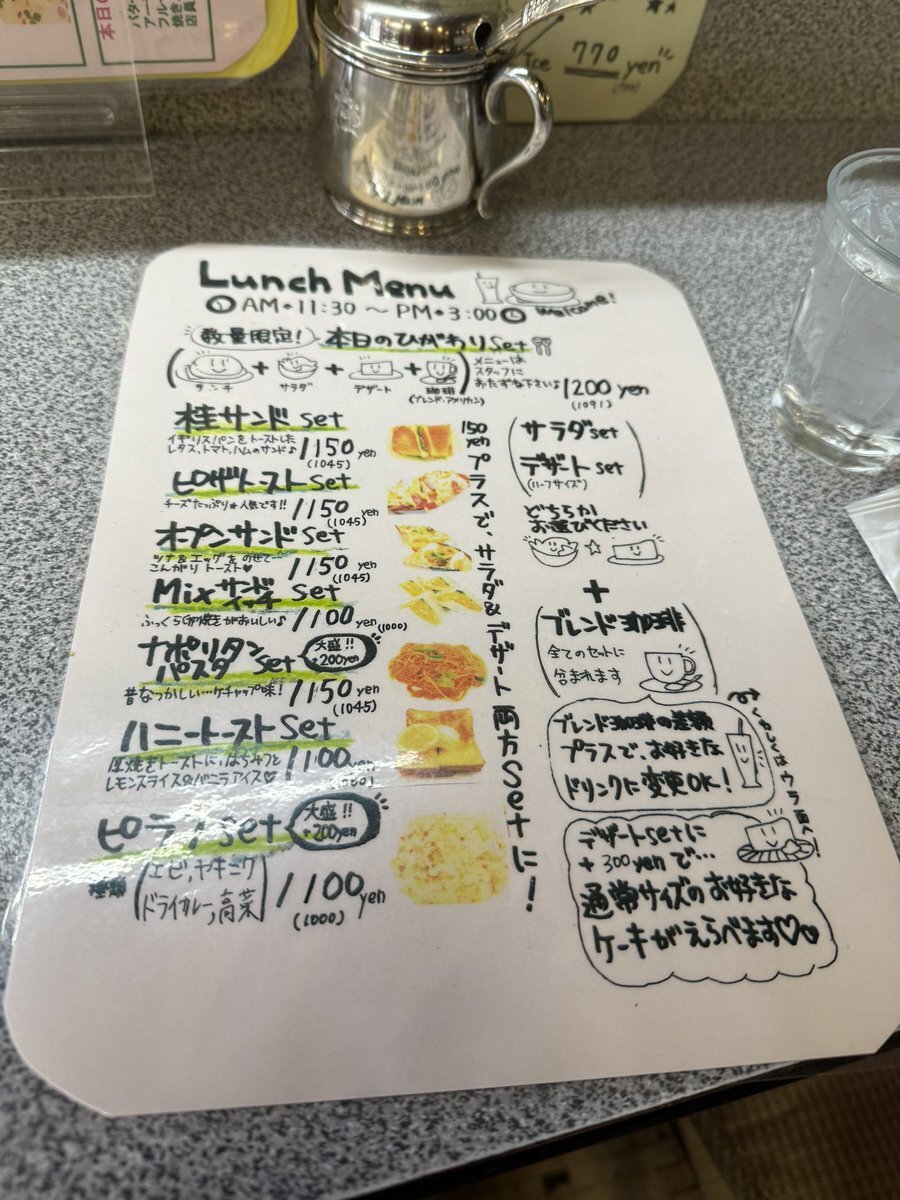 本日の
バタ
アー
フル
焼き
店員
Ice 770 yen
Lunch Menu
AM•11:30 ～ PM•3:00
Welcome!
数量限定! 本日のひがわりSet
ランチ + サラダ + デザート + 珈琲
(ブレンド・アメリカン)
メニューは
スタッフに
おたずね下さい♪
1200 yen
(1091)
桂サンド set
イギリスパンをトーストした
レタス、トマト、ハムのサンド♪
1150 yen
(1045)
ピザトースト set
チーズたっぷり★人気です!!
1150 yen
(1045)
オープンサンド set
ツナ&エッグをのせて…
こんがりトースト♥
1150 yen
(1045)
Mixサンドイッチ set
ふっくら卵焼きがおいしい♪
1100 yen
(1000)
ナポリタン
パスタ set
大盛!!
+200yen
昔なつかしい…ケチャップ味!
1150 yen
(1045)
ハニートースト set
厚焼きトーストに、はちみつと
レモンスライス&バニラアイス♡
1100 yen
ピラフ set
大盛!!
+200yen
エビ、ヤキニク
ドライカレー、高菜
1100 yen
(1000)
150 yen プラスで、サラダ&デザート両方Setに!
サラダ set
デザート set
(ハーフサイズ)
どちらか
お選びください
+
ブレンド珈琲
全てのセットに
含まれます
ブレンド珈琲の差額
プラスで、お好きな
ドリンクに変更OK!
くわしくはウラ面へ!
デザートsetに
+300yenで…
通常サイズのお好きな
ケーキがえらべます♡